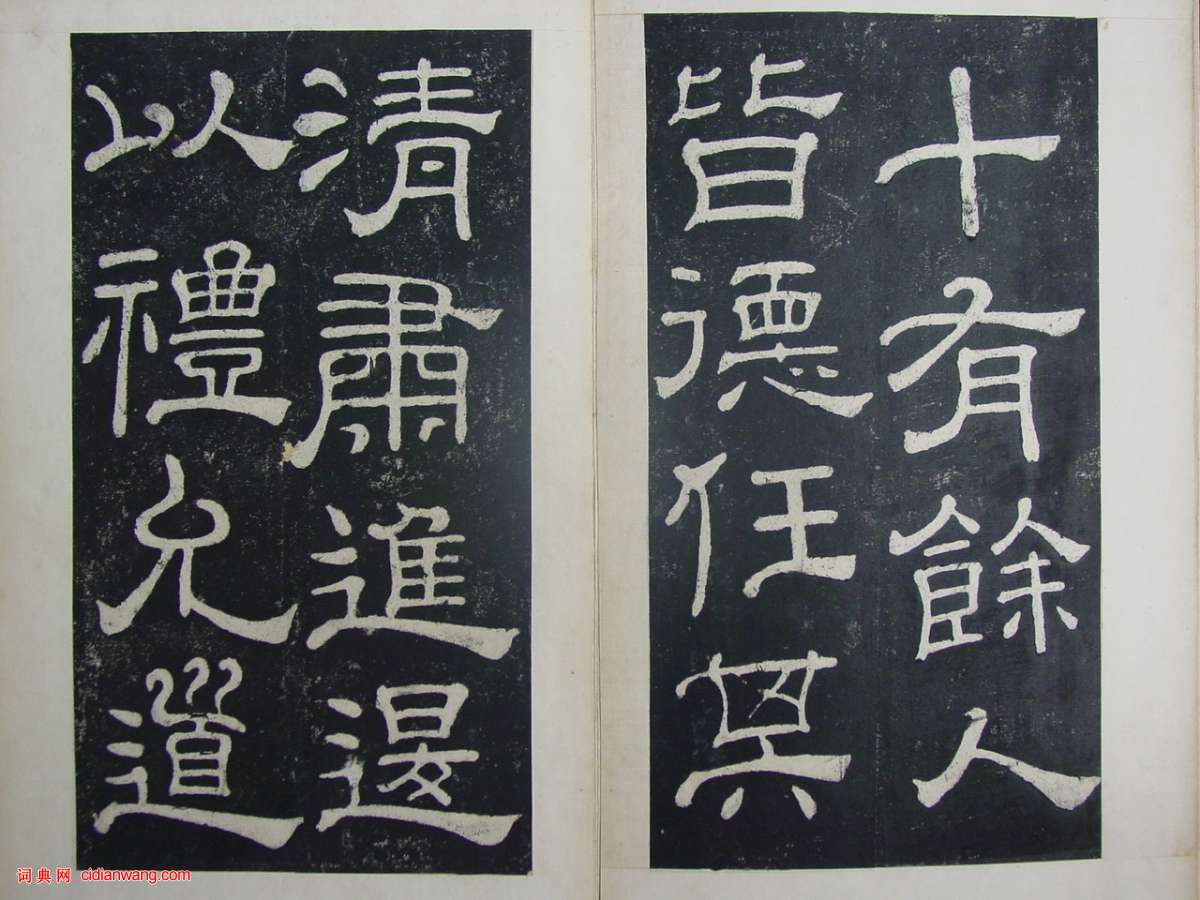 十有餘人
皆德任其
清肅進退
以禮允道
词典网 cidianwang.com